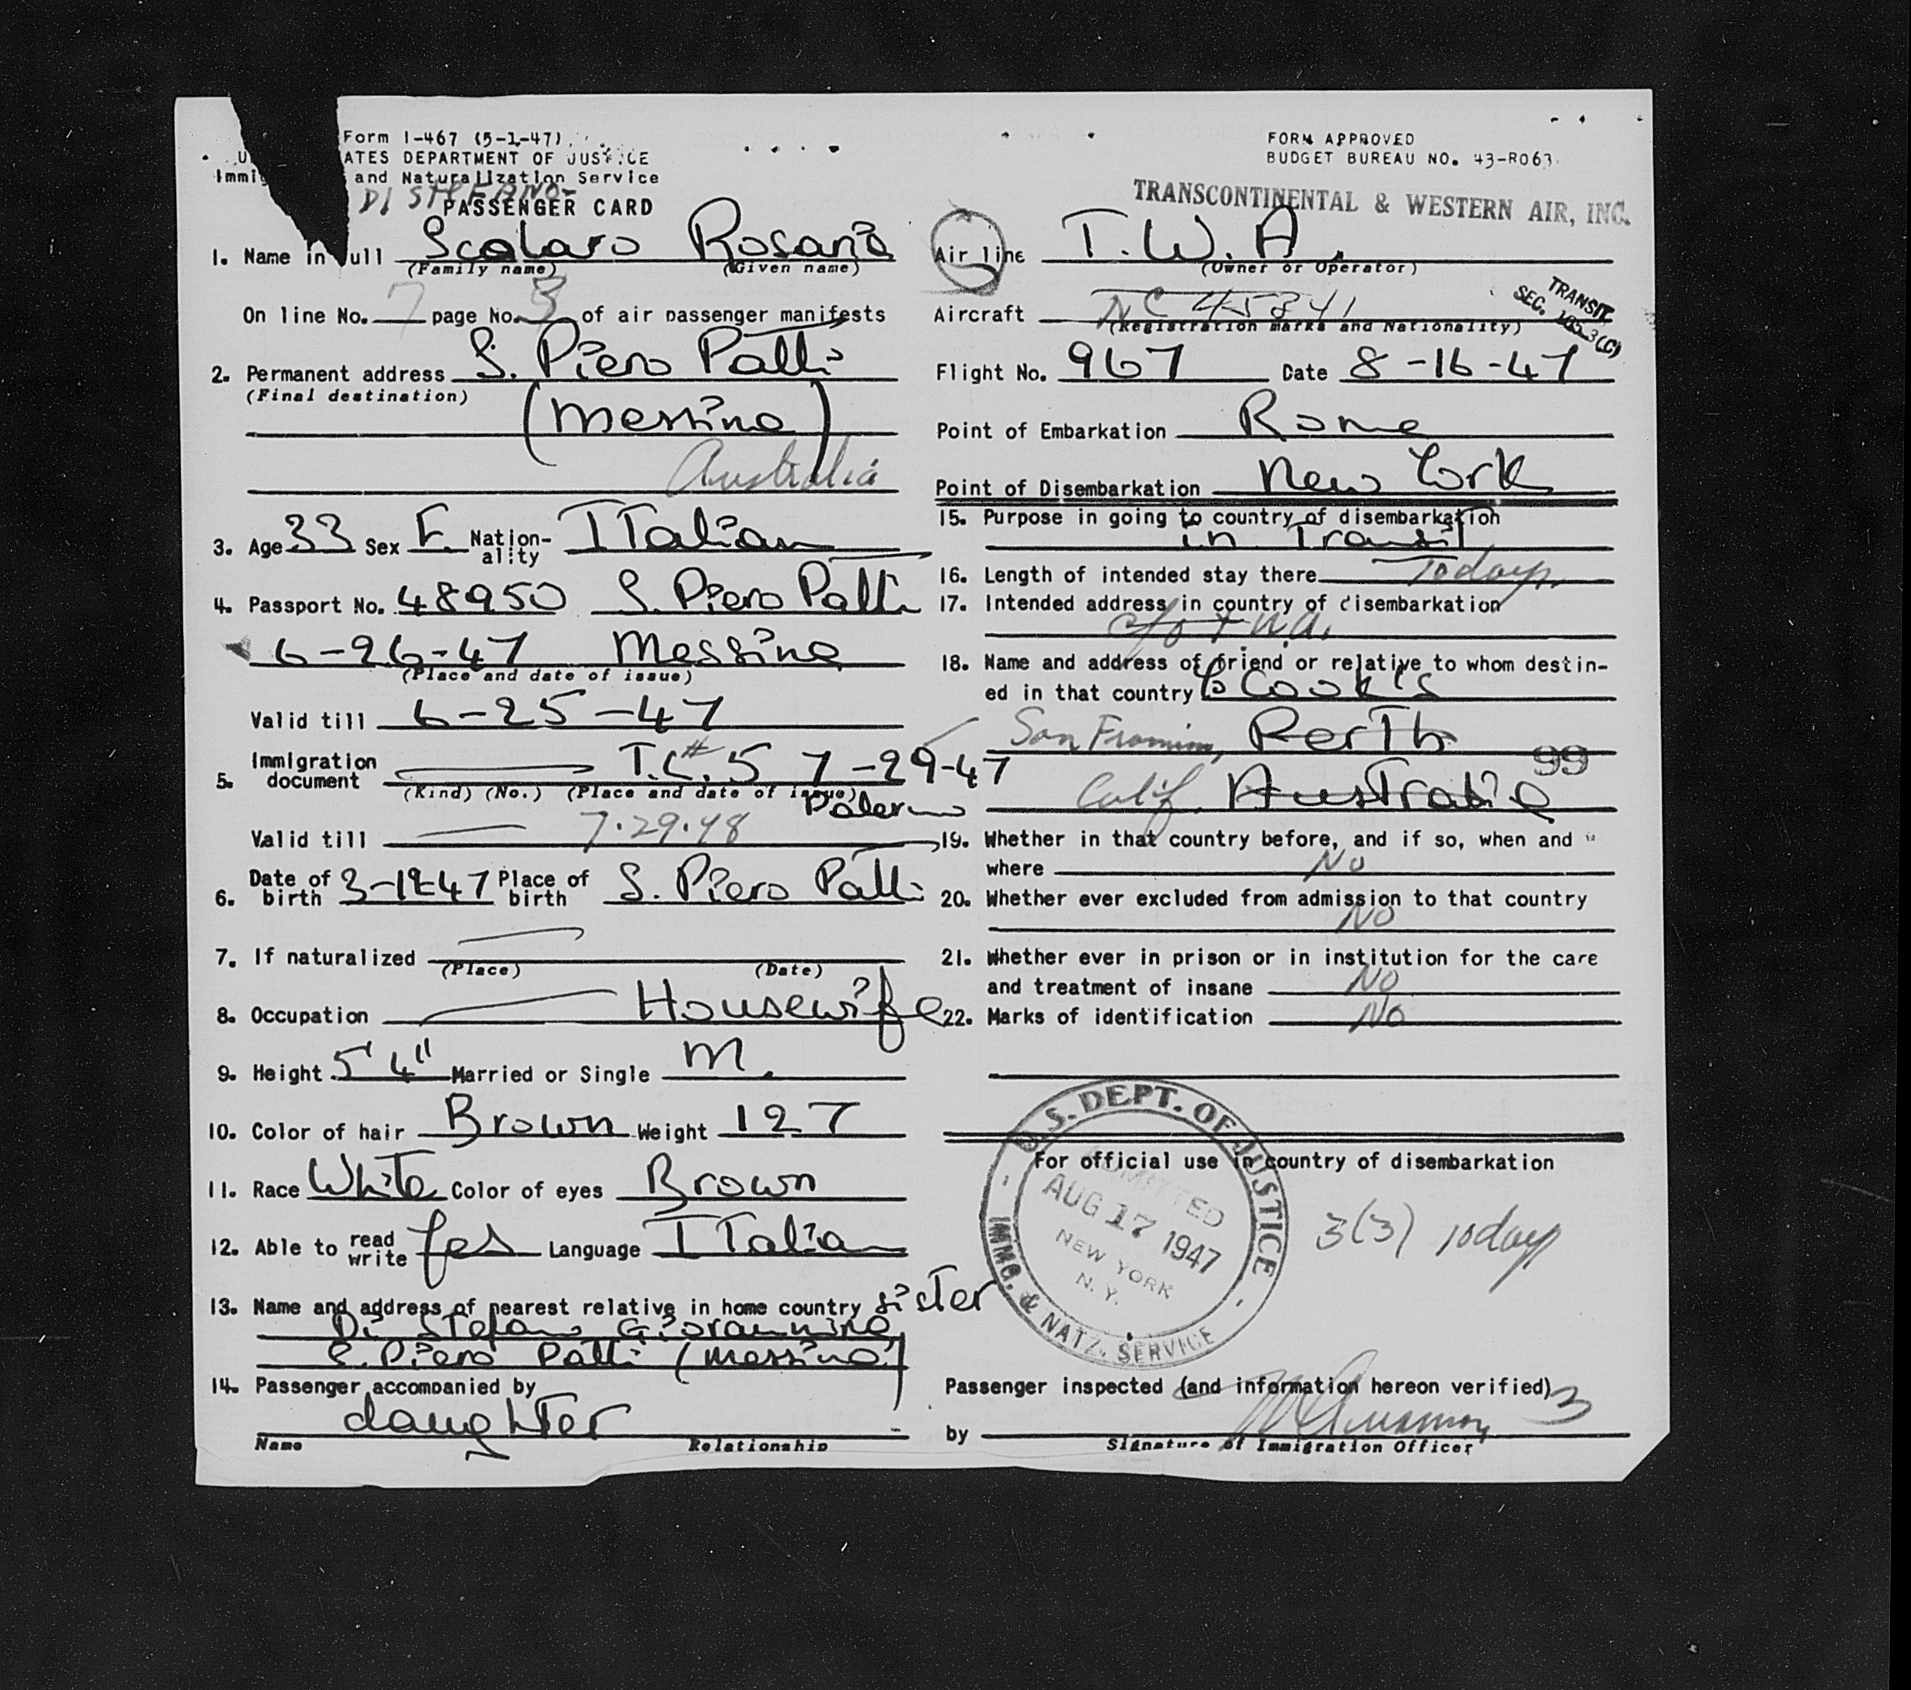 Form I-467 (5-1-47)
ATES DEPARTMENT OF JUSTICE
Immig and Naturalization Service
PASSENGER CARD
1. Name in full Scolaro Rosario
(Family name) (Given name)
On line No. 7 page No. 3 of air passenger manifests
2. Permanent address S. Piero Patti
(Final destination)
(Messina)
Australia
3. Age 33 Sex F. Nation-ality Italian
4. Passport No. 48950 S. Piero Patti
6-26-47 Messina
(Place and date of issue)
Valid till 6-25-47
5. Immigration document T.C.# 5 7-29-47
(Kind) (No.) (Place and date of issue)
Palermo
Valid till 7.29.48
6. Date of birth 3-12-47 Place of birth S. Piero Patti
7. If naturalized
(Place) (Date)
8. Occupation Housewife
9. Height 5'4" Married or Single M.
10. Color of hair Brown Weight 127
11. Race White Color of eyes Brown
12. Able to read write Yes Language Italian
13. Name and address of nearest relative in home country sister
Di Stefano Giovannina
S. Piero Patti (Messina)
14. Passenger accompanied by
daughter
Name Relationship
FORM APPROVED
BUDGET BUREAU NO. 43-R063.
TRANSCONTINENTAL & WESTERN AIR, INC.
Air line T.W.A.
(Owner or Operator)
TRANSIT
SEC. (C)
Aircraft NC 45341
(Registration marks and Nationality)
Flight No. 967 Date 8-16-47
Point of Embarkation Rome
Point of Disembarkation New York
15. Purpose in going to country of disembarkation
in Transit
16. Length of intended stay there 10 days
17. Intended address in country of disembarkation
c/o T.W.A.
18. Name and address of friend or relative to whom destin-
ed in that country Cook's
San Perth
99
Calif. Australia
19. Whether in that country before, and if so, when and
where No
20. Whether ever excluded from admission to that country
No
21. Whether ever in prison or in institution for the care
and treatment of insane No
22. Marks of identification No
For official use in country of disembarkation
U.S. DEPT. OF JUSTICE
IMMG. & NATZ. SERVICE
ADMITTED
AUG 17 1947
NEW YORK
N.Y.
3(3) 10 days
Passenger inspected (and information hereon verified) 3
by
Signature of Immigration Officer